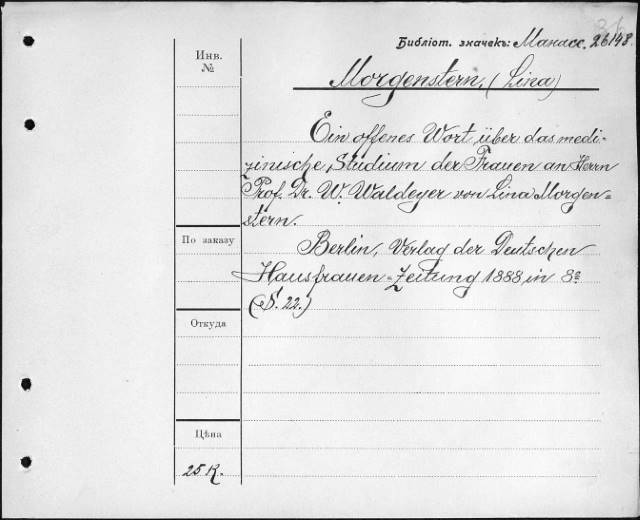 Библіот. значекъ: Манасс. 26148.
Инв.
№
Morgenstern, (Lina)
Ein offenes Wort über das medi-
zinische Studium der Frauen an Herrn
Prof. Dr. W. Waldeyer von Lina Morgen-
stern.
По заказу
Berlin, Verlag der Deutschen
Hausfrauen-Zeitung 1888, in 8º
(S. 22.)
Откуда
Цѣна
25 K.